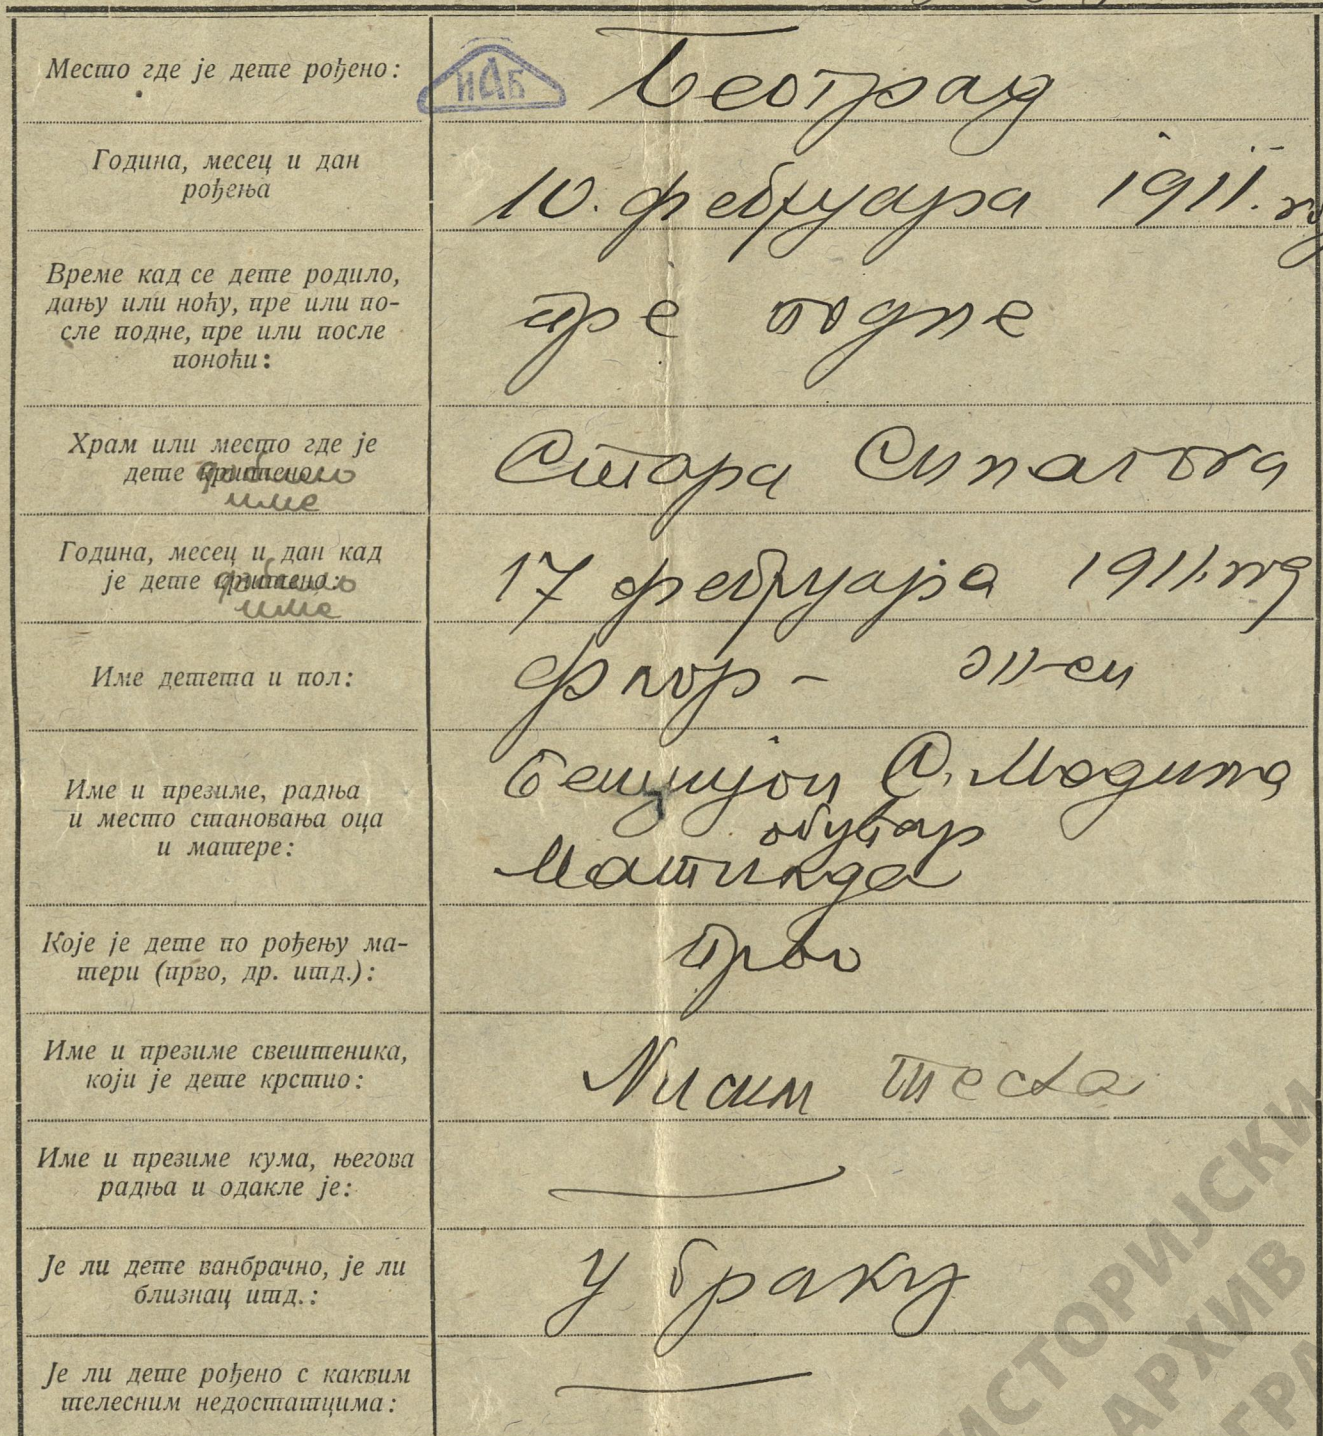 Место где је дете рођено:
ИАБ
Београд
Година, месец и дан
рођења
10. фебруара 1911. год
Време кад се дете родило,
дању или ноћу, пре или по-
сле подне, пре или после
поноћи:
пре подне
Храм или место где је
дете крштено:
добило
име
Стара Синагога
Година, месец и дан кад
је дете крштено:
добило
име
17 фебруара 1911. год
Име детета и пол:
Флор - жен
Име и презиме, радња
и место становања оца
и матере:
С. Модиано
обућар
Матилда
Које је дете по рођењу ма-
тери (прво, др. итд.):
прво
Име и презиме свештеника,
који је дете крстио:
Нисим Теста
Име и презиме кума, његова
радња и одакле је:
Је ли дете ванбрачно, је ли
близнац итд.:
у браку
Је ли дете рођено с каквим
телесним недостатцима:
ИСТОРИЈСКИ
АРХИВ